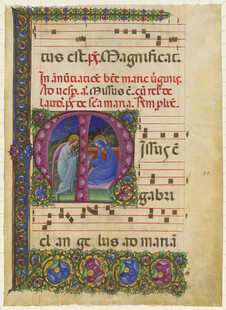 tus est. ps. Magnificat.
In annūtiatiōe bēe marie ūginis.
Ad uesp. a. Missus ē. cū re de
laud. ps. de sca maria. 
M Issus ē
gabri
el an ge lus ad mariā